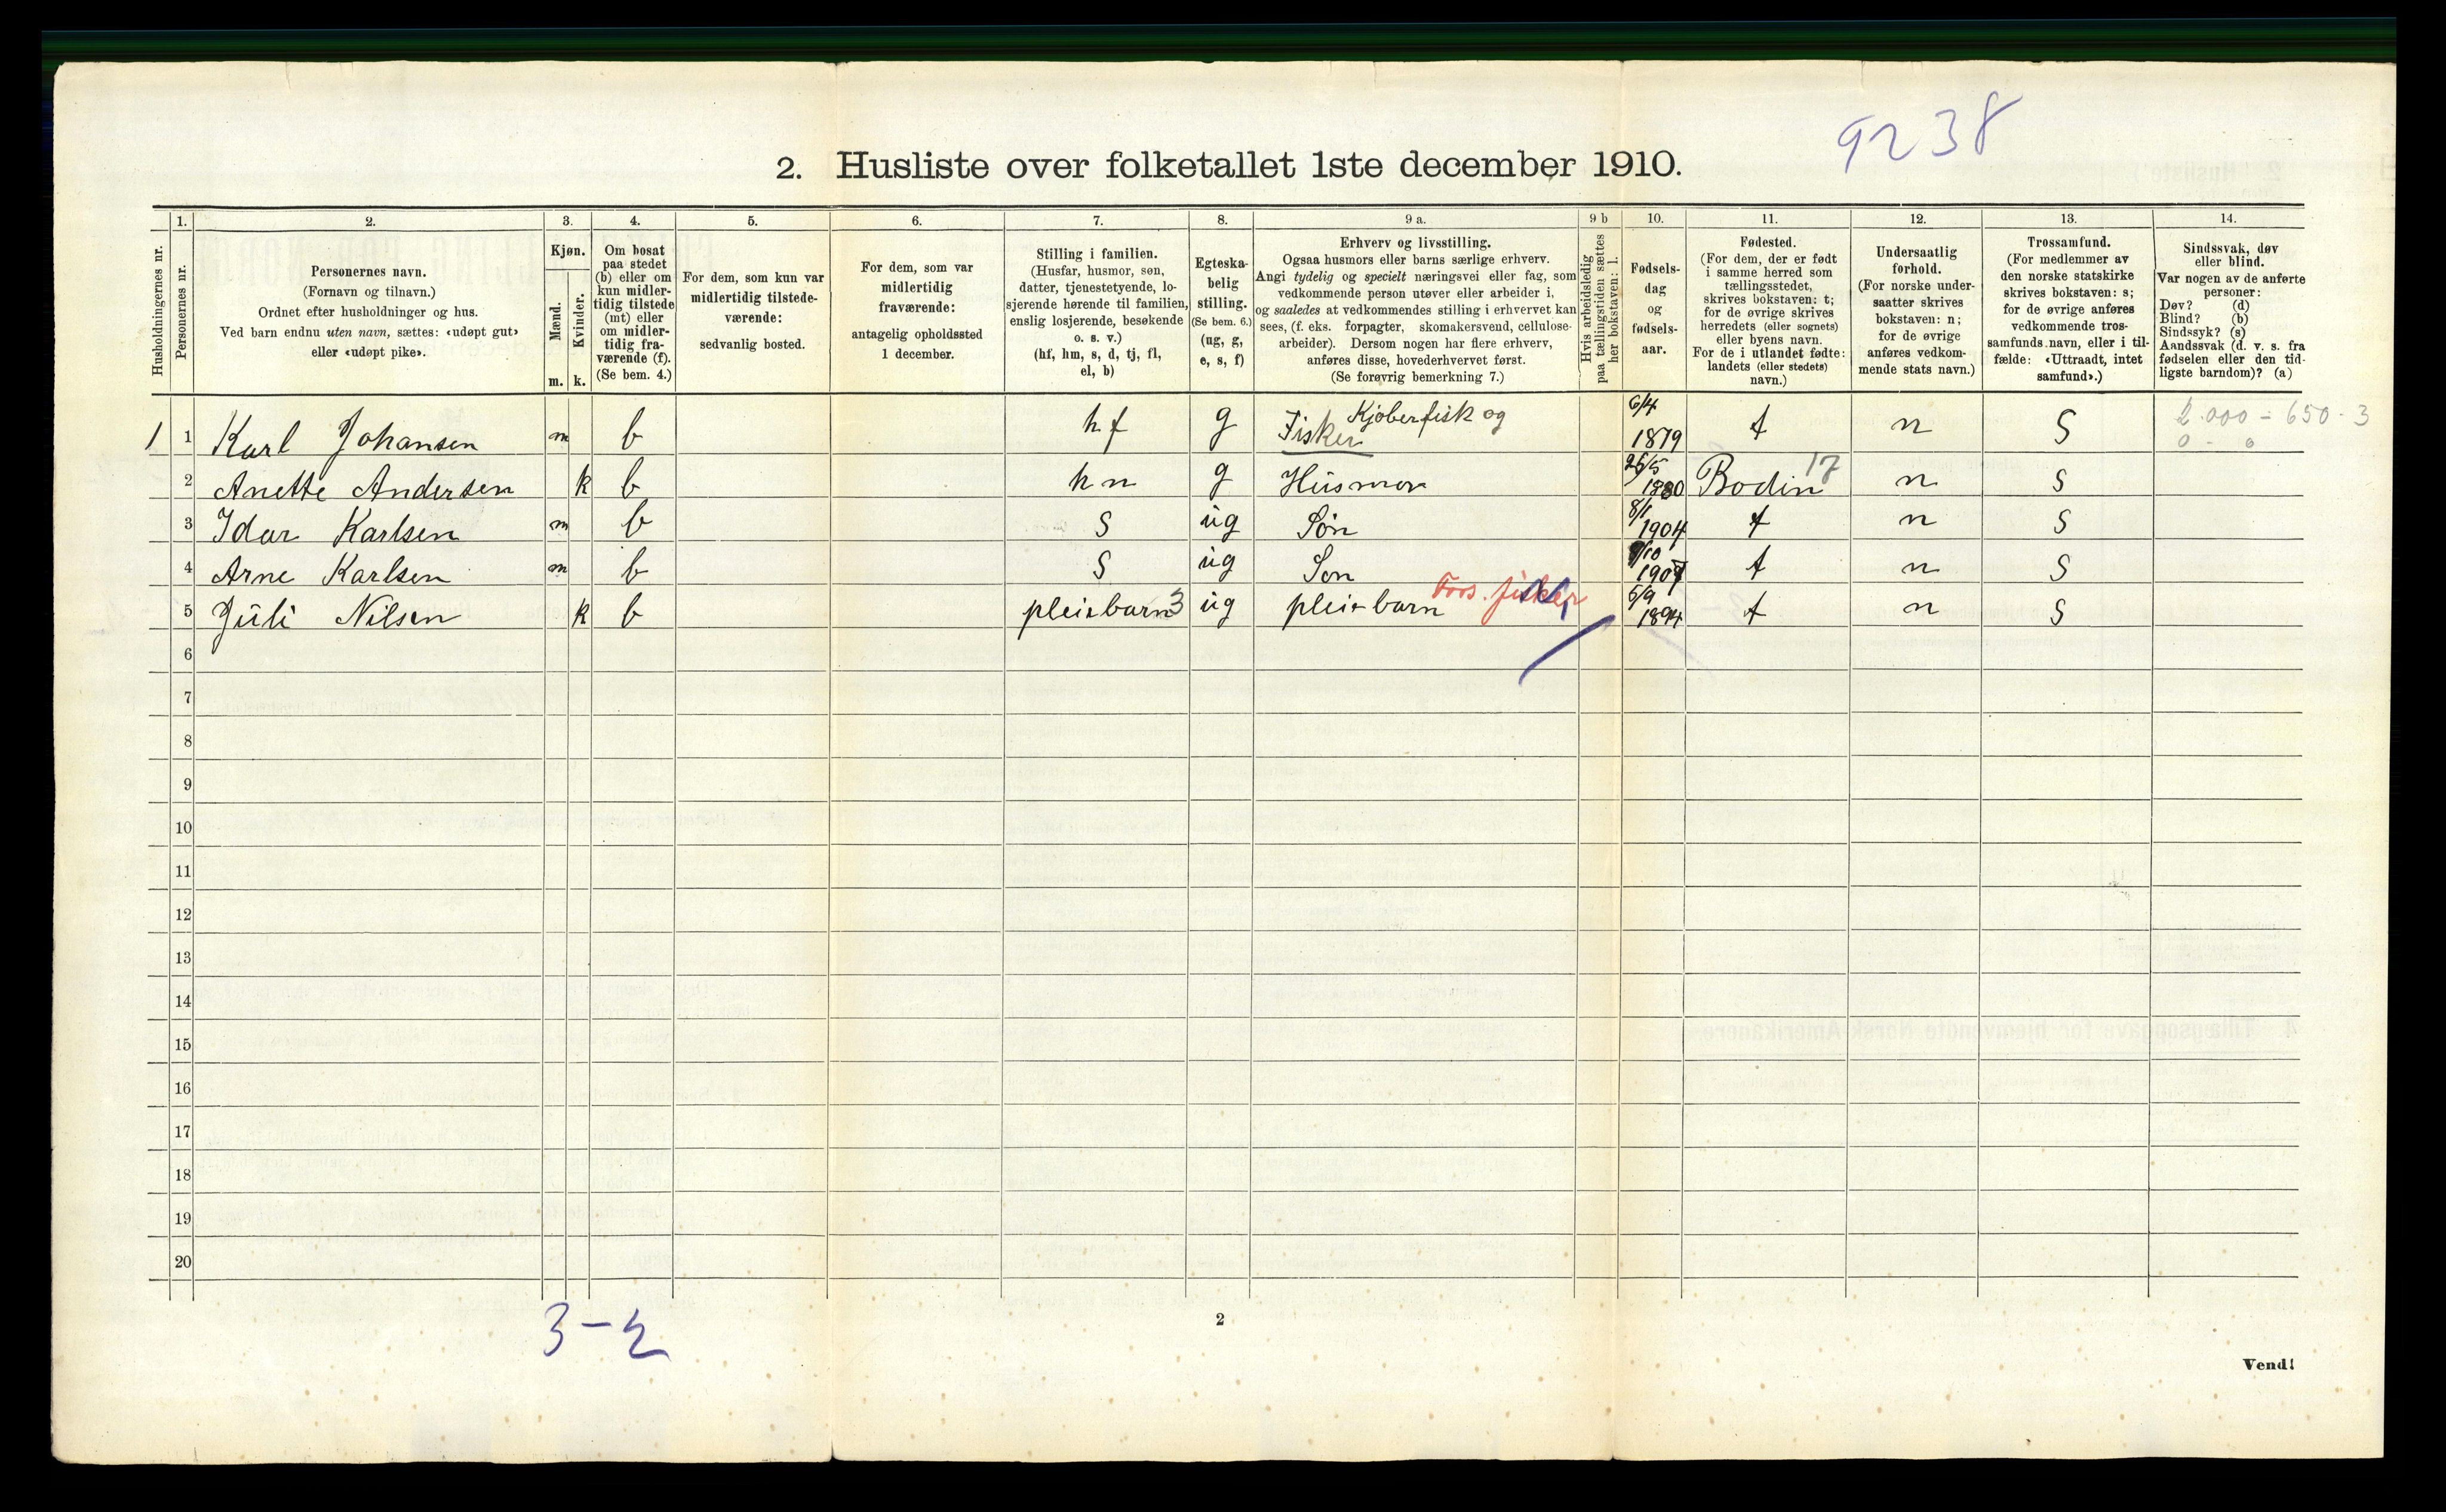 9238
2. Husliste over folketallet 1ste december 1910.
Husholdningernes nr.
1.
Personernes nr.
2.
Personernes navn.
(Fornavn og tilnavn.)
Ordnet efter husholdninger og hus.
Ved barn endnu uten navn, sættes: «udøpt gut»
eller «udøpt pike».
3.
Kjøn.
Mænd.
Kvinder.
m. k.
4.
Om bosat
paa stedet
(b) eller om
kun midler-
tidig tilstede
(mt) eller
om midler-
tidig fra-
værende (f).
(Se bem. 4.)
5.
For dem, som kun var
midlertidig tilstede-
værende:
sedvanlig bosted.
6.
For dem, som var
midlertidig
fraværende:
antagelig opholdssted
1 december.
7.
Stilling i familien.
(Husfar, husmor, søn,
datter, tjenestetyende, lo-
sjerende hørende til familien,
enslig losjerende, besøkende
o. s. v.)
(hf, hm, s, d, tj, fl,
el, b)
8.
Egteska-
belig
stilling.
(Se bem. 6.)
(ug, g,
e, s, f)
9 a.
Erhverv og livsstilling.
Ogsaa husmors eller barns særlige erhverv.
Angi tydelig og specielt næringsvei eller fag, som
vedkommende person utøver eller arbeider i,
og saaledes at vedkommendes stilling i erhvervet kan
sees, (f. eks. forpagter, skomakersvend, cellulose-
arbeider). Dersom nogen har flere erhverv,
anføres disse, hovederhvervet først.
(Se forøvrig bemerkning 7.)
9 b
Hvis arbeidsledig
paa tællingstiden sættes
her bokstaven: l.
10.
Fødsels-
dag
og
fødsels-
aar.
11.
Fødested.
(For dem, der er født
i samme herred som
tællingsstedet,
skrives bokstaven: t;
for de øvrige skrives
herredets (eller sognets)
eller byens navn.
For de i utlandet fødte:
landets (eller stedets)
navn.)
12.
Undersaatlig
forhold.
(For norske under-
saatter skrives
bokstaven: n;
for de øvrige
anføres vedkom-
mende stats navn.)
13.
Trossamfund.
(For medlemmer av
den norske statskirke
skrives bokstaven: s;
for de øvrige anføres
vedkommende tros-
samfunds navn, eller i til-
fælde: «Uttraadt, intet
samfund».)
14.
Sindssvak, døv
eller blind.
Var nogen av de anførte
personer:
Døv? (d)
Blind? (b)
Sindssyk? (s)
Aandssvak (d. v. s. fra
fødselen eller den tid-
ligste barndom)? (a)
1 1 Karl Johansen m b hf g Fisker Kjøberfisk og 6/4 1879 t n S 2.000 - 650 - 3
0 - 0
2 Anette Andersen k b hn g Husmor 25/5 1880 Bodin 17 n S
3 Idar Karlsen m b S ug Søn 8/1 1904 t n S
4 Arne Karlsen m b S ug Son /10 1907 t n S
5 Juli Nilsen k b pleiebarn 3 ug pleiebarn Fors. fisker 6/9 1894 t n S
6
7
8
9
10
11
12
13
14
15
16
17
18
19
20
3-2
2
Vend!